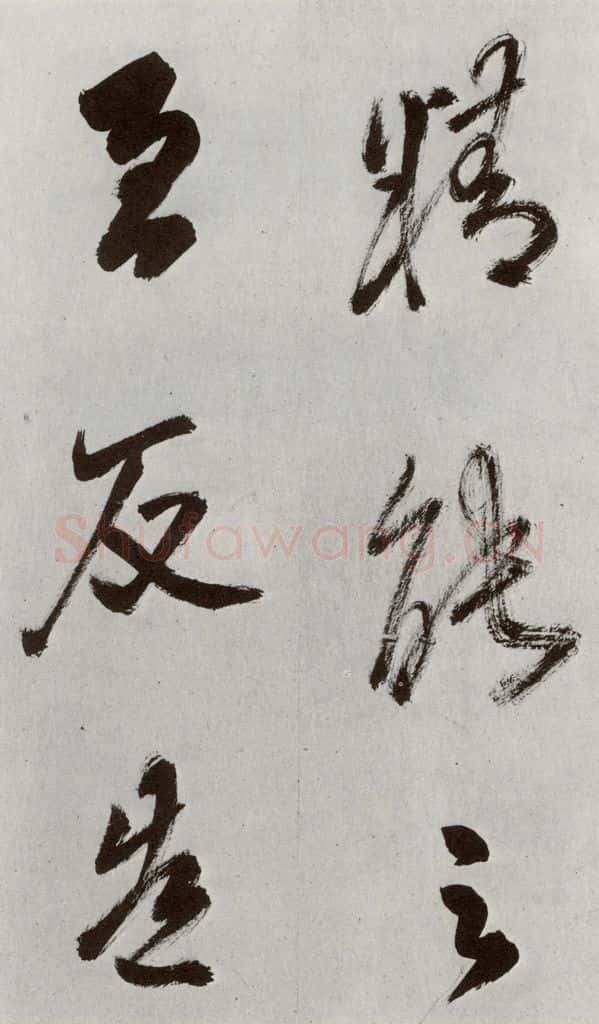 精能之
至反造
Shufawang.CN